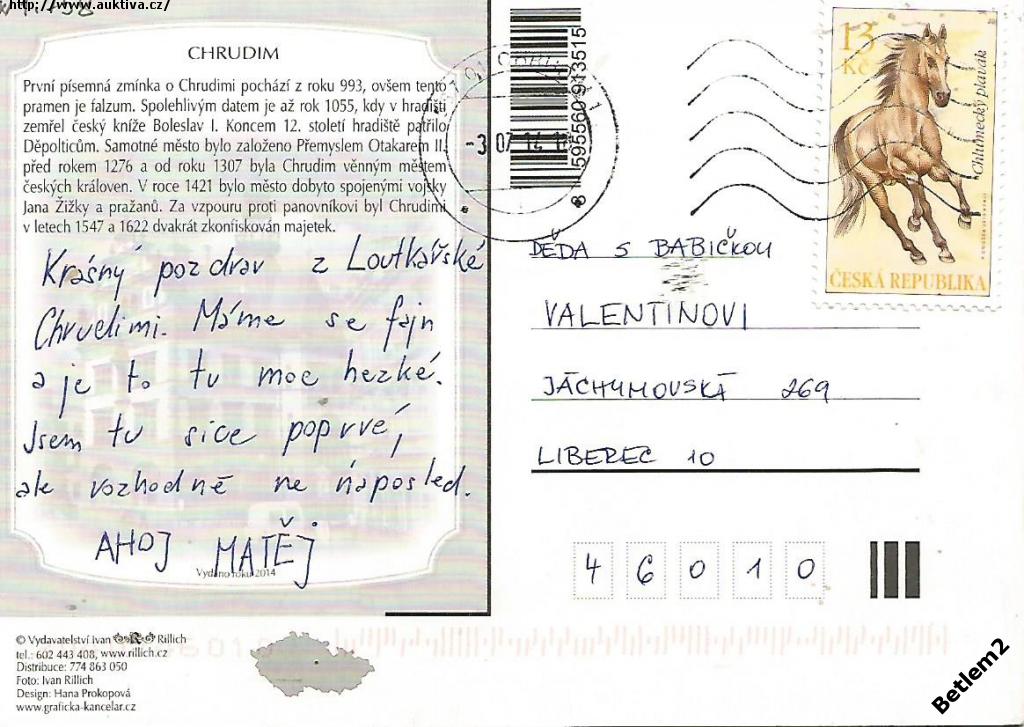 http://www.auktiva.cz/
CHRUDIM
První písemná zmínka o Chrudimi pochází z roku 993, ovšem tento
pramen je falzum. Spolehlivým datem je až rok 1055, kdy v hradišti
zemřel český kníže Boleslav I. Koncem 12. století hradiště patřilo
Děpolticům. Samotné město bylo založeno Přemyslem Otakarem II.
před rokem 1276 a od roku 1307 byla Chrudim věnným městem
českých královen. V roce 1421 bylo město dobyto spojenými vojsky
Jana Žižky a pražanů. Za vzpouru proti panovníkovi byl Chrudimi
v letech 1547 a 1622 dvakrát zkonfiskován majetek.
Krásný pozdrav z Loutkářské
Chrudimi. Máme se fajn
a je to tu moc hezké.
Jsem tu sice poprvé,
ale rozhodně ne naposled.
AHOJ MATĚJ
Vydáno roku 2014
© Vydavatelství Ivan Rillich
tel.: 602 443 408, www.rillich.cz
Distribuce: 774 863 050
Foto: Ivan Rillich
Design: Hana Prokopová
www.graficka-kancelar.cz
8 595560 913515
-3.07.14
13
Kč
Chlumecký plavák
ČESKÁ REPUBLIKA
DĚDA S BABIČKOU
VALENTINOVI
JÁCHYMOVSKÁ 269
LIBEREC 10
46010
Betlem2